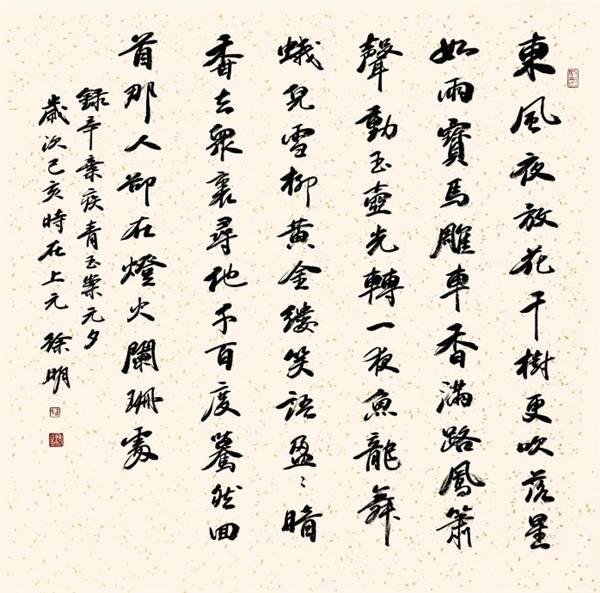 東風夜放花千樹更吹落星
如雨寶馬雕車香滿路鳳簫
聲動玉壺光轉一夜魚龍舞
蛾兒雪柳黃金縷笑語盈〻暗
香去眾裏尋他千百度驀然回
首那人卻在燈火闌珊處
錄辛棄疾青玉案元夕
歲次己亥時在上元 徐明